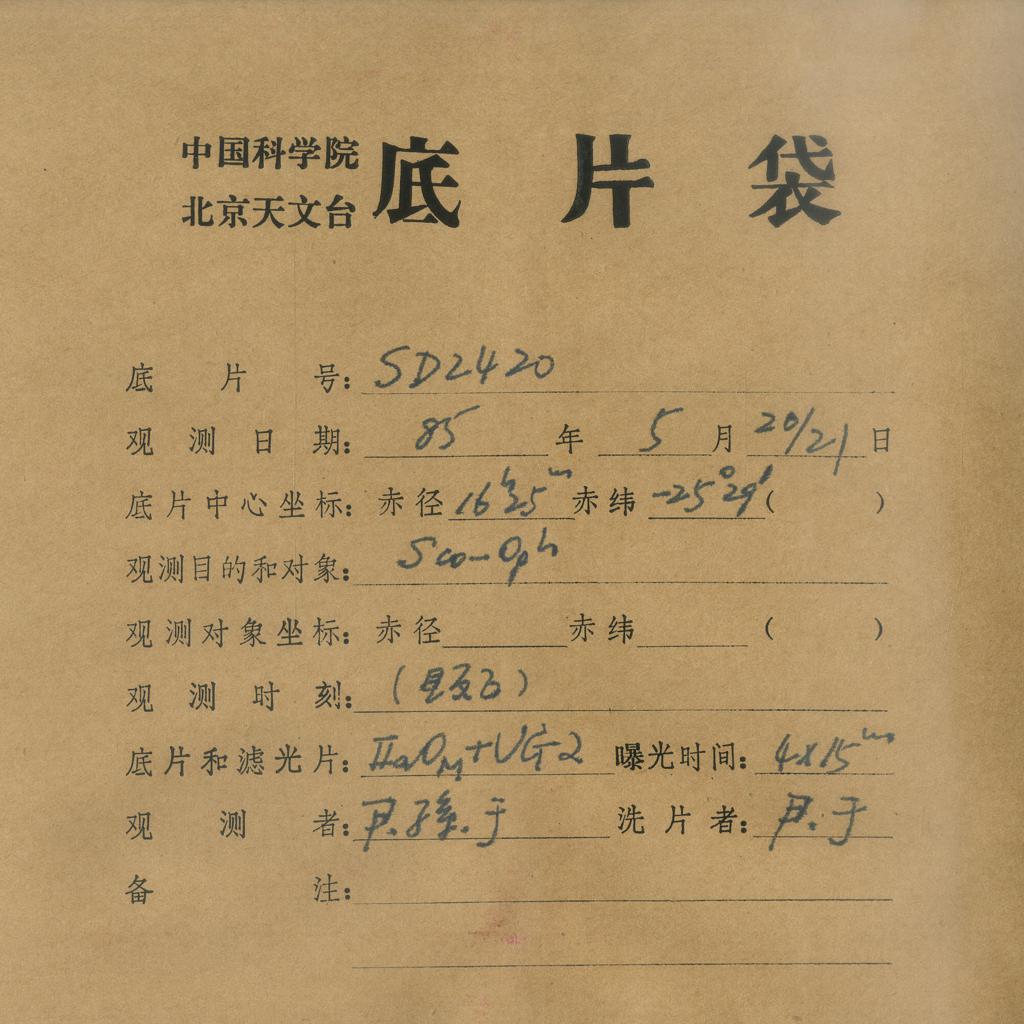 中国科学院
北京天文台
底片袋
底片号: SD2420
观测日期: 85年5月20/21日
底片中心坐标: 赤径16h25m赤纬-25°29′( )
观测目的和对象: Sco-Oph
观测对象坐标: 赤径 赤纬 ( )
观测时刻: (见反面)
底片和滤光片: IIaOM+UG2 曝光时间: 4x15m
观测者: 尹.孫.于 洗片者: 尹.于
备注: